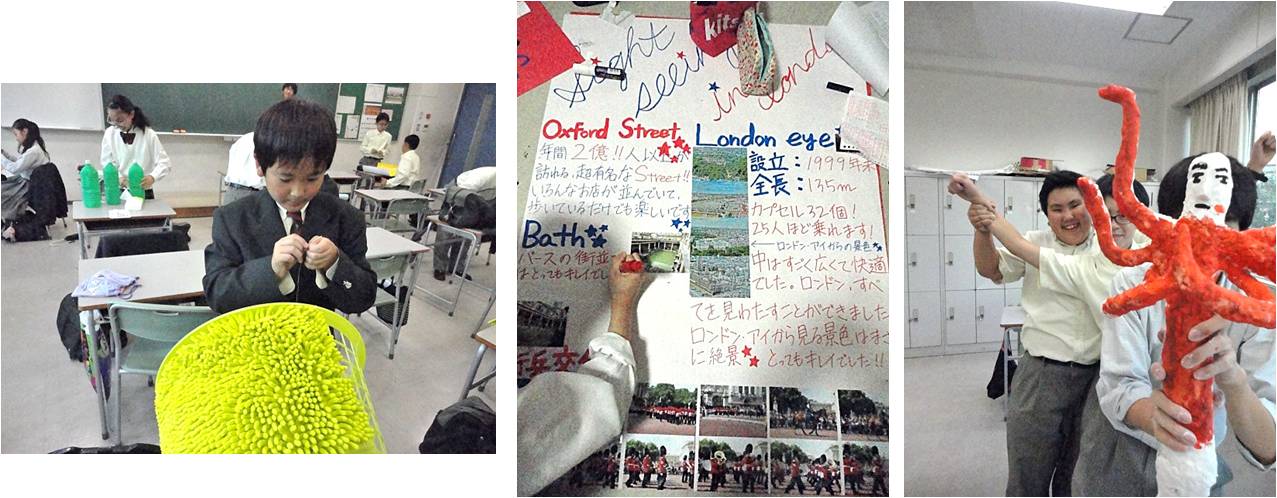 kits
Sight
seeing
in London
Oxford Street
年間2億!!人以上が
訪れる、超有名なStreet!!
いろんなお店が並んでいて、
歩いているだけでも楽しいです
Bath
バースの街並
はとってもキレイでし
London eye!
設立:1999年末
全長:135m
カプセル32個!
25人ほど乗れます!
←ロンドン・アイからの景色
中はすごく広くて快適
でした。ロンドン、すべ
てを見わたすことができました
ロンドン・アイから見る景色はまさ
に絶景 とってもキレイでした!!